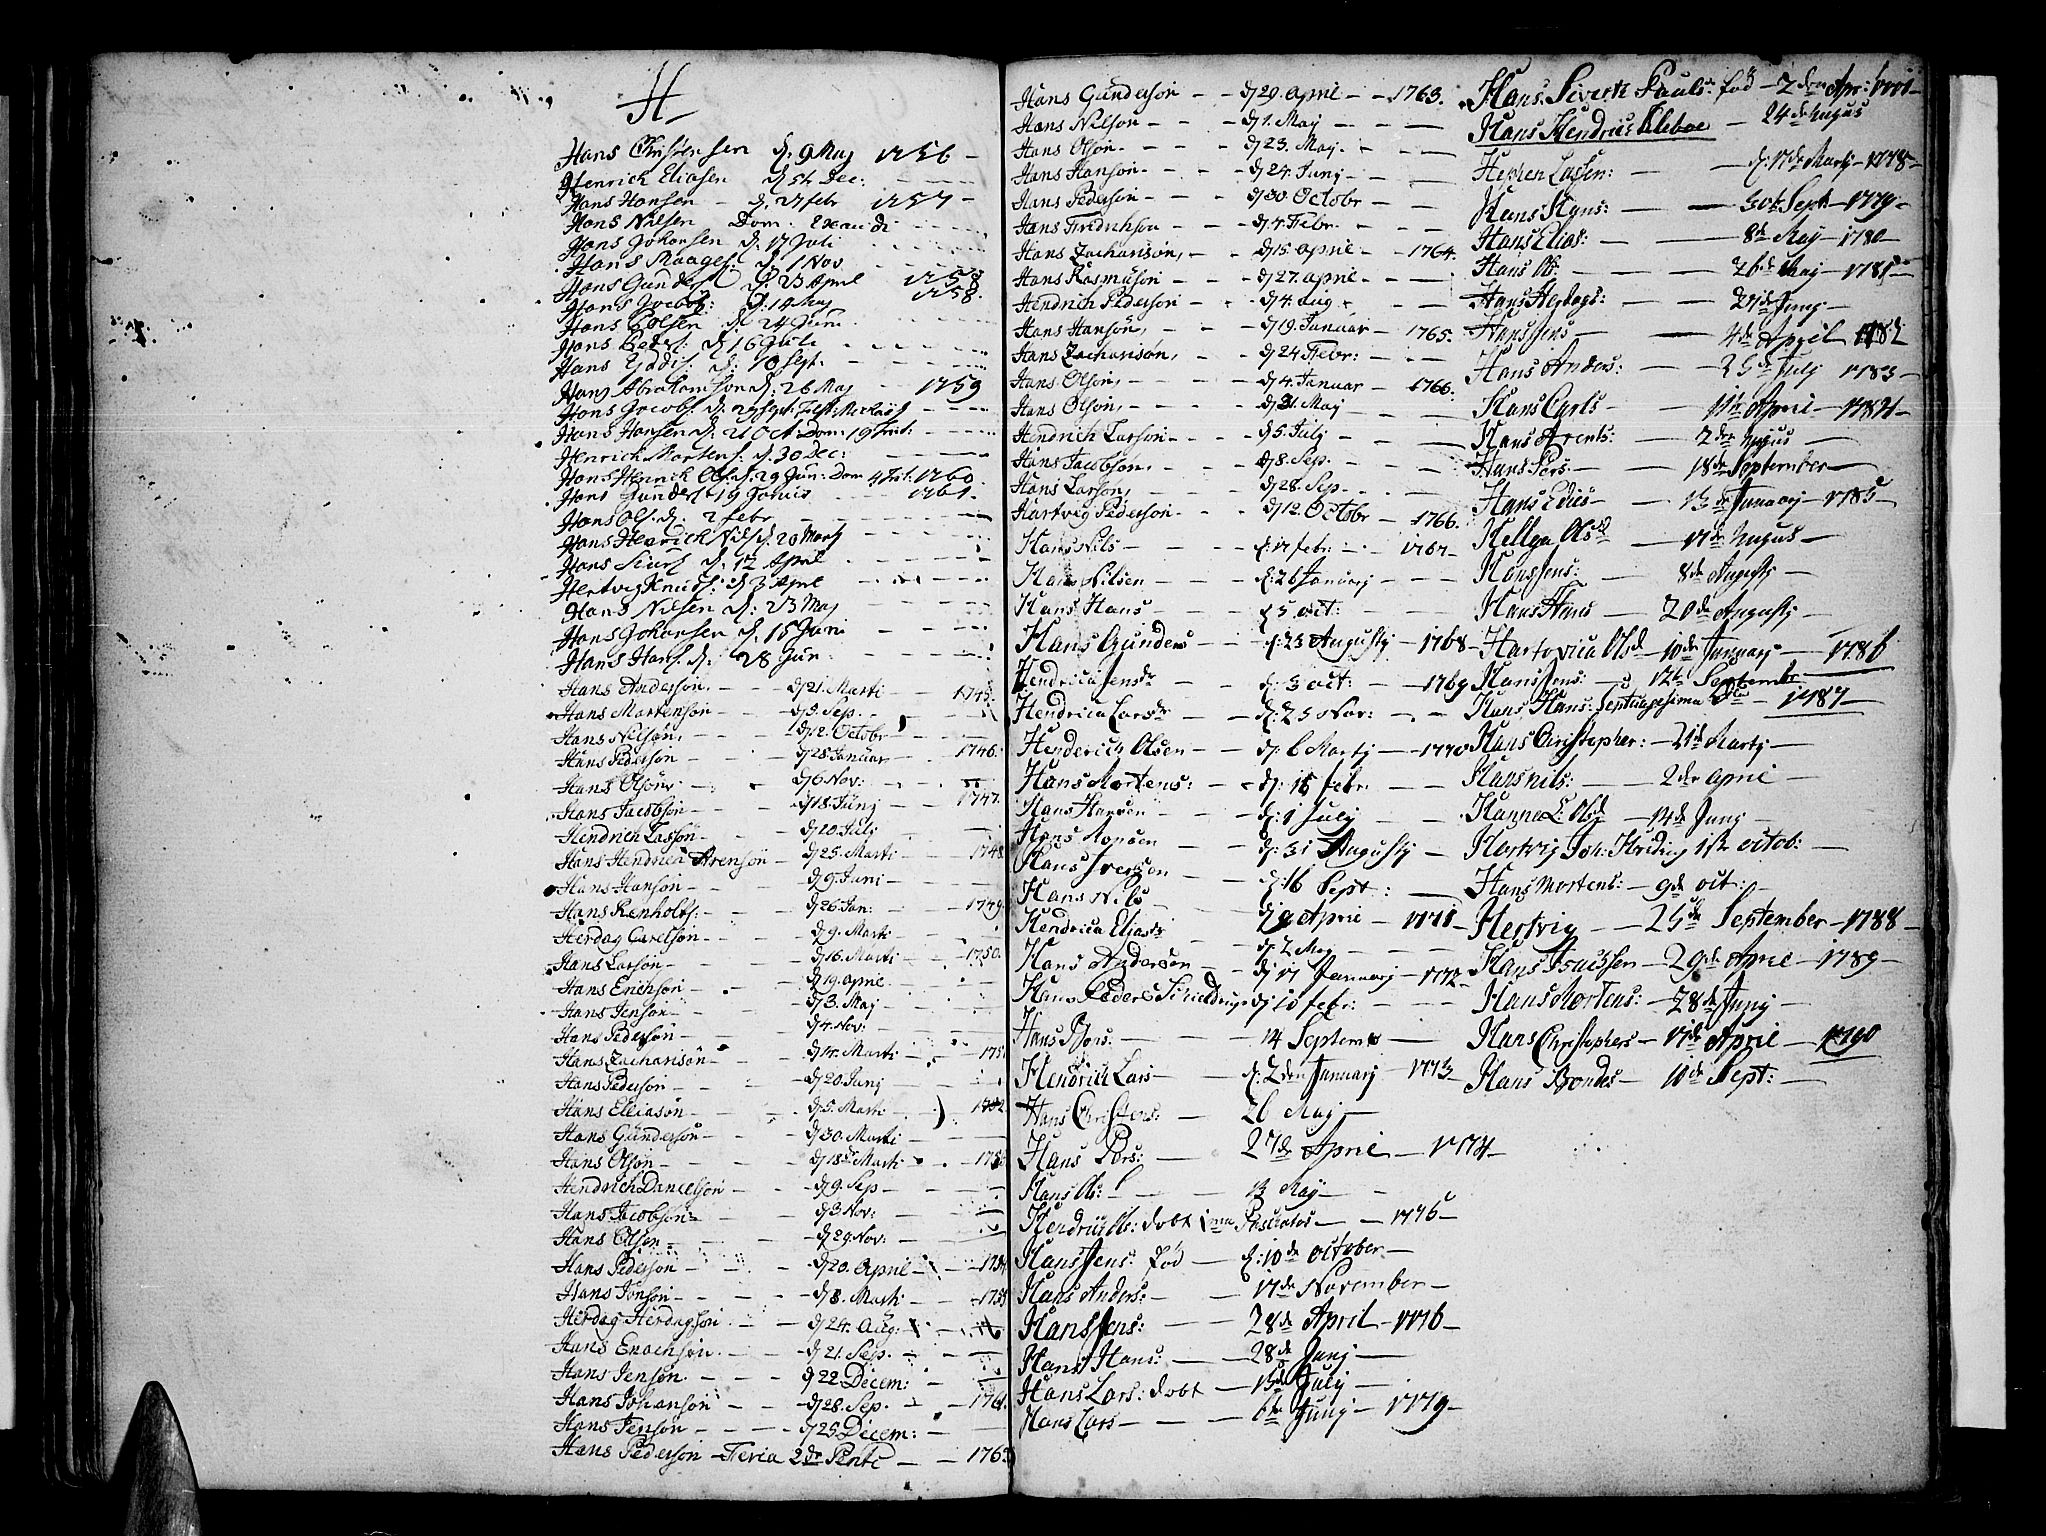 H
Hans Christensen d. 9 Maj 1756 —
Henrich Eliasen Dec:
Hans Hansøn d. 27 febr 1757 —
Hans Nilsen Dom. Exaudi
Hans Johansen d. 17 Juli
Hans Maages: d. 1 Nov
Hans Gunders d. 23 April 1758
Hans Jocobs: d. 14 Maj 1758.
Hans d. 24 Juni
Hans Peders: d. 16 Juli
Hans d. 10 Sept.
Hans Abrahamsøn d. 26 Maj 1759
Hans Jacobs: d. 29 Sept:
Hans Hansen d. 21 Oct: Dom: 19 Trit:
Henrich Mortens: d. 30 Dec:
Hans Henrick Ols: d. 29 Jun: Dom 4 Trit: 1760.
Hans Gunders 19 1761.
Hans Ols: d. 2 febr
Hans Henrich Nils: d. 20 Martj
Hans d. 12 April
Hertvig Knuds: d. 3 April
Hans Nilsen d: 23 Maj
Hans Johansen d. 15 Juni
Hans Hans: d: 28 Jun:
Hans Anderson. — d/21. Marti — 1745.
Hans Martenson — d/5. Sep.
Hans Nilson, d/12. Octobr
Hans Pederson — d/28. Januar — 1746.
Hans Olson d/6 Nov:
Hans Jacobson — d/18. Junj — 1747.
Hendrich Lasson — d/20. Julj
Hans Hendrich Arenson — d/25. Marti — 1748.
Hans Hanson — d/9. Juni —
Hans Renholts: — d/26. Jan: — 1749.
Herdag Carelson — d/9. Marti
Hans Larson — d/16. Marti — 1750.
Hans Erichson — d/19. april
Hans Jenson — d/3. Maj
Hans Pederson — d/4. Nov:
Hans Zachariason — d/14. Marti — 175
Hans Pederson — d/20. Junj
Hans Elliason — d/5. Marti — 1752.
Hans Gunderson — d/30. Marti —
Hans Olson — d/18. Marti — 175
Hendrich Danielson — d/9. Sep —
Hans Jacobson — d/3 Nov:
Hans Olson — d/29. Nov:
Hans Pederson — d/20. April — 175
Hans Jonson — d/8. Marti — 175
Herdag Herdagson — d/24. Aug:
Hans Enochson. — d/21. Sep.
Hans Jenson. — 22 Decem: —
Hans Johanson — d/28. Sep. — 1761.
Hans Jenson — d/25 Decem: —
Hans Pederson — Feria 2dr Pente — 176
Hans Gunderson — d/29. april — 1763.
Hans Nilson — d/1. Maj
Hans Olson. — d/23. Maj.
Hans Hanson. — d/24. Junj
Hans Pederson — d/30. Octobr
Hans Fredrihson — d/4. Febr.
Hans Zacharison, — d/15. april — 1764.
Hans Rasmuson — d/27. april
Hendrich Pederson — d/4. Aug.
Hans Hanson, — d/19. Januar — 1765.
Hans Zacharison, — d/24 Febr:
Hans Olson, — d/4. Januar — 1766.
Hans Olson, — d/31. Maj
Hendrich Larson — d/5. Julj
Hans Jacobson, — d/8. Sep.
Hans Larson, — d/28. Sep.
Hartvig Pederson — d/12. Octobr — 1766.
Hans Nils — d: 17 febr: — 1767 —
Hans Nilsen — d: 26 Januarj
Hans Hans — d 5 oct:
Hans Gunders — d: 23 Augustj — 1768 —
Hendrica Jensdr — d: 3 oct: — 1769
Hendrica Larsdr — d: 25 Nov:
Henderich Olsen — d: 6 Martj — 1770
Hans Mortens: — d: 15 febr:
Hans Hansøn — d: 1 Julj
Hans — d: 31 Augustj —
Hans Iversøn — d: 16 Sept: —
Hans Nils — April — 1771 —
Hendrica Eliasdr — d: 2 Maj
Hans Andersøn — d: 17 Januarj — 1772 —
Hans Peders d: 10 febr:
Hans — 14 Septemr —
Hendrich Lars — d: 2den Januarj — 1773 —
Hans Christens: — 26 Maj —
Hans Pors: — 27de April — 1774 —
Hans Ols: — 13 Maj —
Hendrich Ols: døbt — 1776 —
Hans Jens: fød — d: 10de october —
Hans Anders: — 17de November —
Hans Jens: — 28de April — 1776 —
Hans Hans: — 28de Junj —
Hans Lars: døbt — 15de Julij —
Hans Lars — 6te Junj — 1779 —
Hans Siverts Pauls: fød — 2den Apr:
Hans Hendrich Kleboe — 24de
Lassen: — d: 17de Martj — 1778 —
Hans Hans: — 30te Sept — 1779 —
Hans Elias: — 8de Maj — 1780 —
Hans Ols: — 26de Maj — 1781 —
Hans Herdags: — 24de Junj —
Hans Jens — 4de April 1782
Hans Anders: — 25de Julj 1783 —
Hans Carls — 11te April — 1784 —
Hans Arents: — 2den
Hans Pors — 18de September —
Hans — 13de Januarj — 1785 —
Hellga Olsd — 17de
Hans Jens: — 8de Augustj —
Hans Hans — 20de Augustj —
Hartovica Olsd — 10de Januarj — 1786
Hans Jens: — 12te Septembr —
Hans Hans: Septuagesima — 1787 —
Hans Christopher: — 21de Martj —
Hans Nils: — 2den april —
Hanna L. Olsd — 14de Junj —
Hartvig Joh: 1ste octob: —
Hans Mortens: — 9de oct: —
Hertvig — 25de September — 1788 —
Hans Isachsen — 29de April — 1789 —
Hans Mortens: — 28de Junj —
Hans Christophers — 17de April — 1790
Hans Bondes — 10de Sept: —